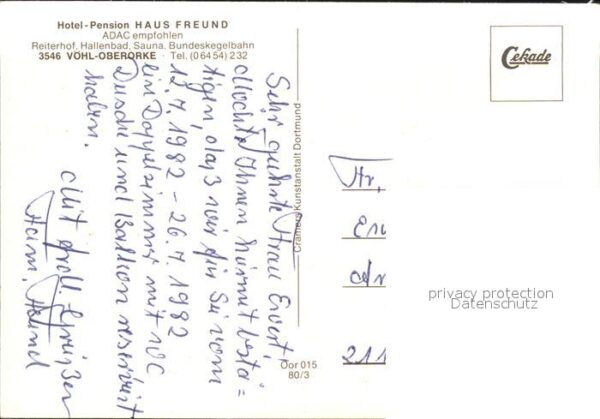 Hotel-Pension HAUS FREUND
ADAC empfohlen
Reiterhof, Hallenbad, Sauna, Bundeskegelbahn
3546 VÖHL-OBERORKE · Tel. (06454) 232
Cekade
Sehr geehrte Frau Ewert,
Möchte Ihnen hiermit bestä=
tigen, daß wir für Sie vom
12.7.1982 - 26.7.1982
ein Doppelzimmer mit WC
Dusche und Balkon reserviert
haben.
Mit frdl. Grüßen
Fam. Freund
Cramers Kunstanstalt Dortmund
Oor 015
80/3
privacy protection
Datenschutz
211